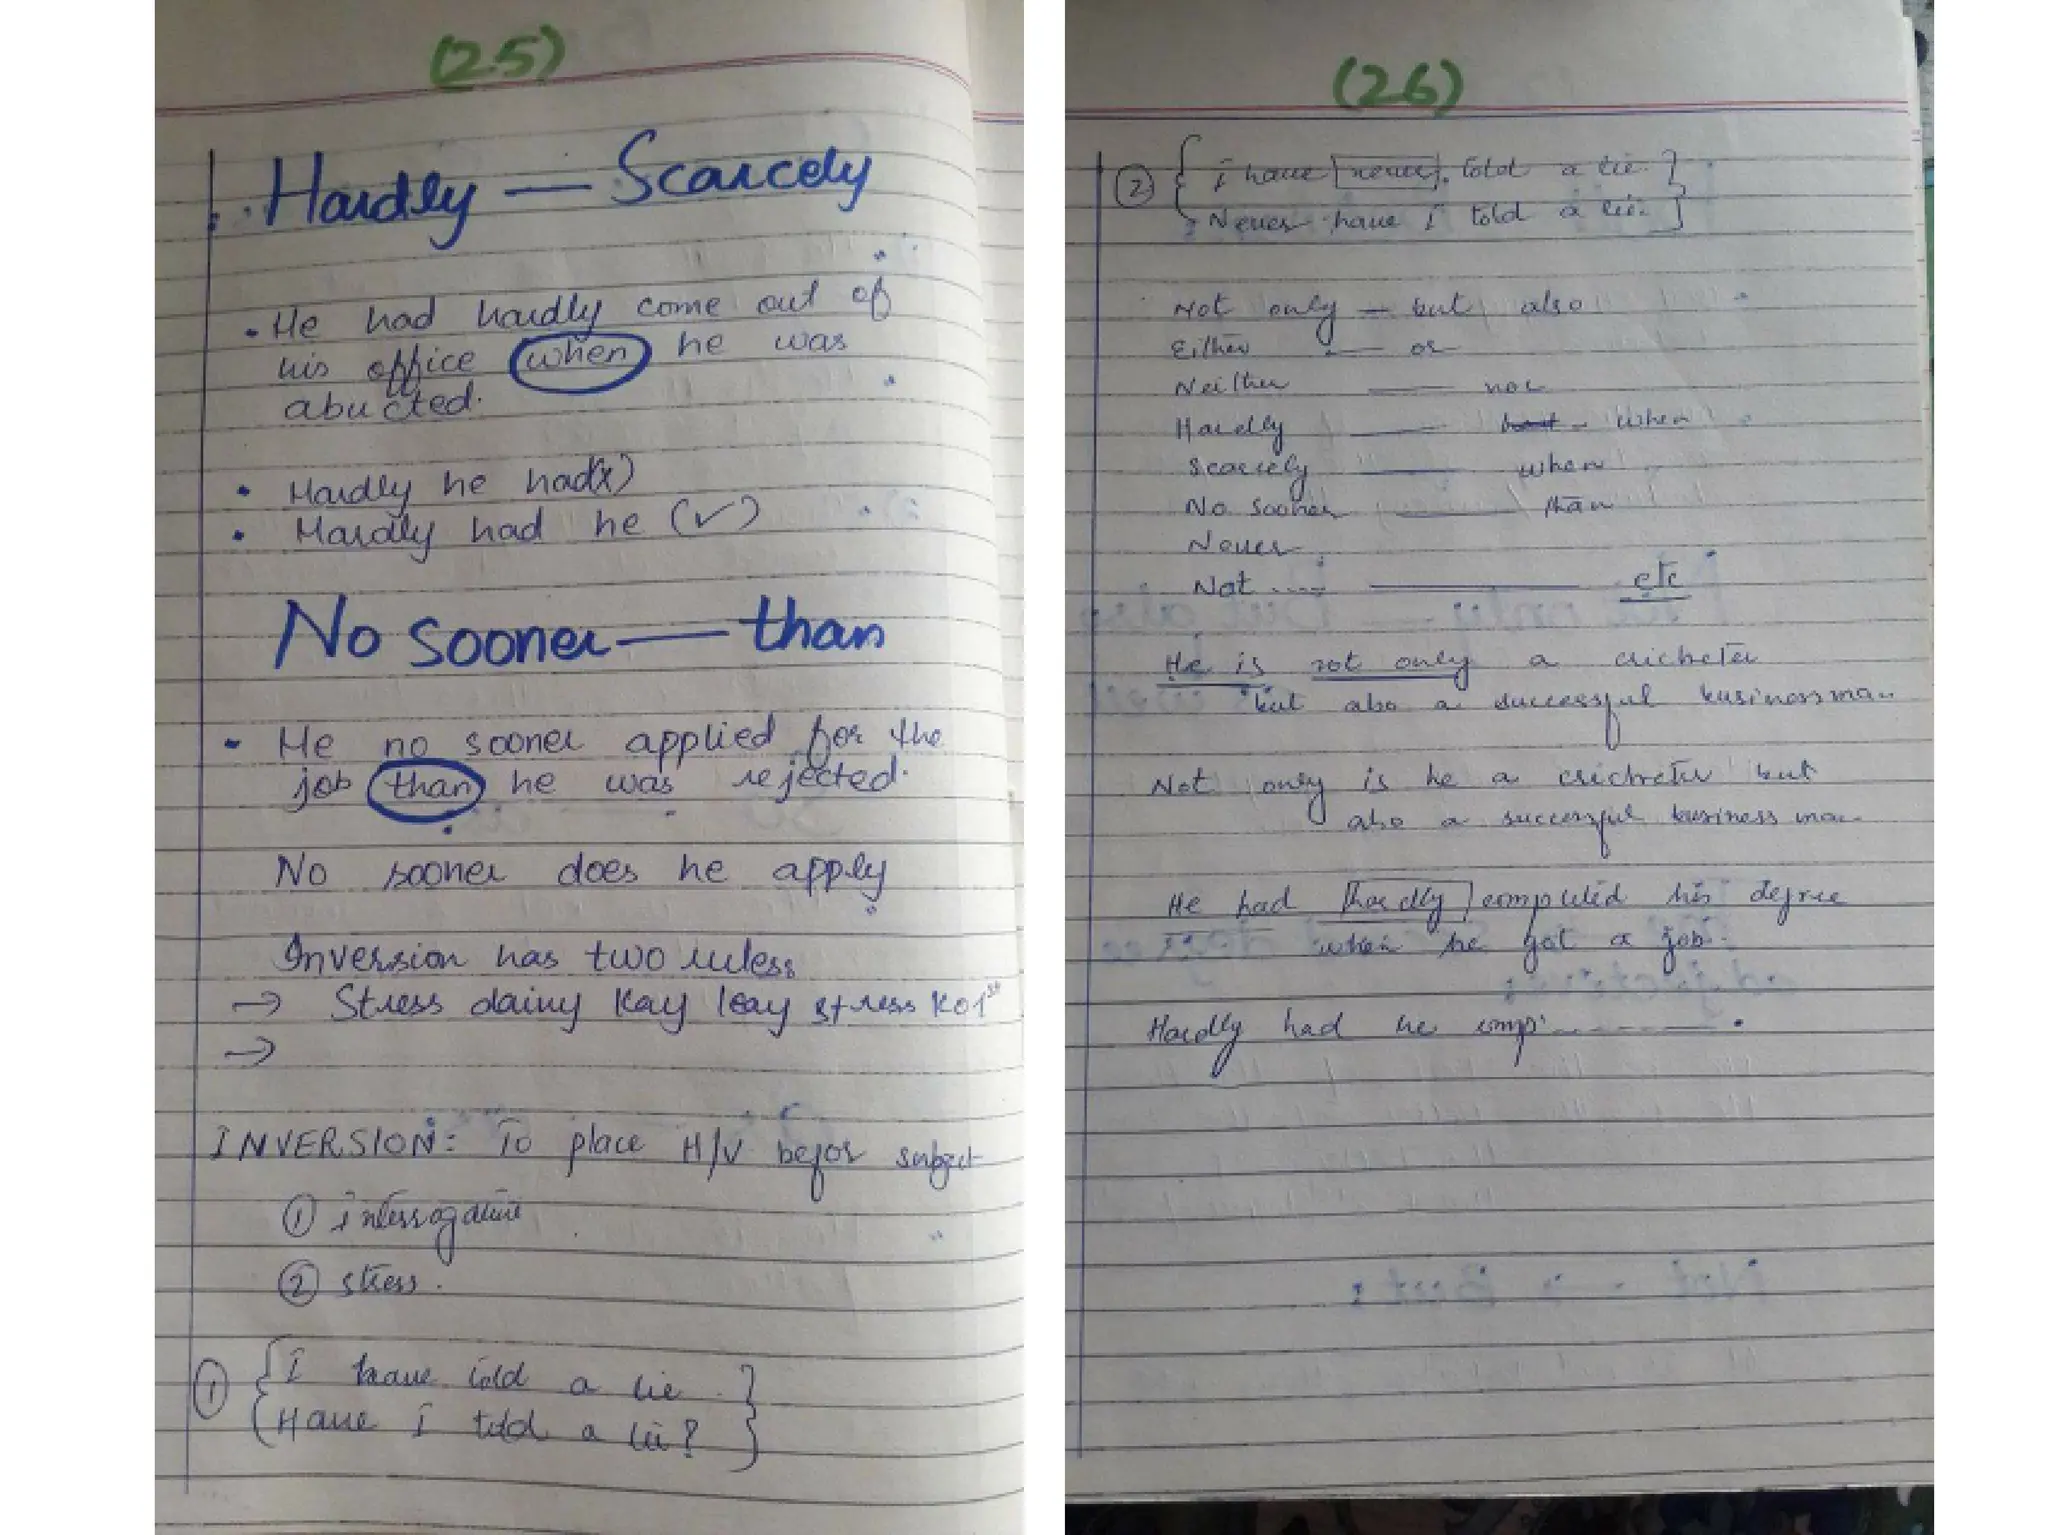 (25)
Hardly — Scarcely
• He had hardly come out of
his office when he was
abucted.
• Hardly he had (x)
• Hardly had he (✓)
No sooner — than
• He no sooner applied for the
job than he was rejected.
No sooner does he apply
Inversion has two rules
→ Stress dainy kay leay stress ko 1st
→
INVERSION: To place H/V befor subject
① interrogative
② stress.
① { I have told a lie. }
{ Have I told a lie? }
(26)
② { I have never told a lie. }
{ Never have I told a lie. }
Not only — but also
Either — or
Neither — nor
Hardly — when
Scarcely — when
No sooner — than
Never
Not .... — etc
He is not only a cricketer
but also a successful businessman
Not only is he a cricketer but
also a successful business man
He had hardly completed his degree
when he got a job.
Hardly had he comp: ------ .